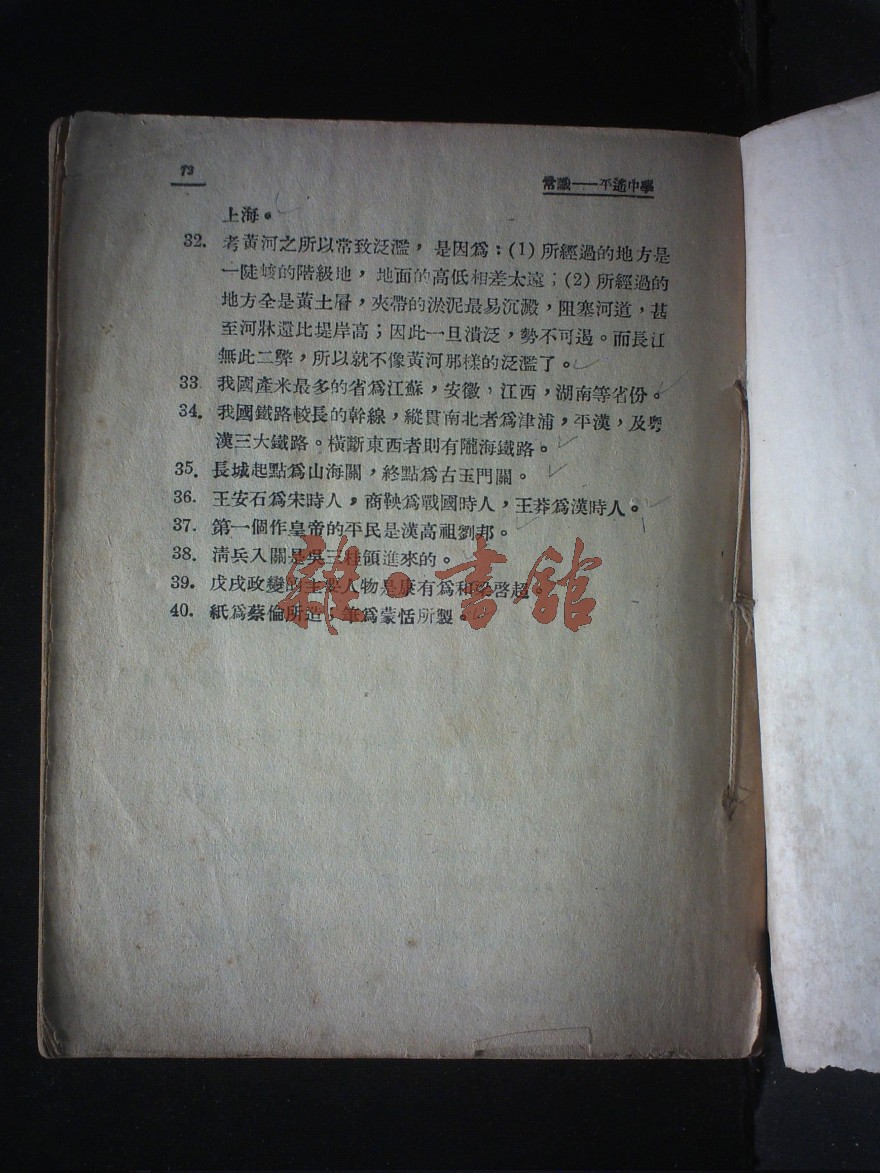 73
常識——平遙中學
上海。
32. 考黃河之所以常致泛濫，是因爲：(1) 所經過的地方是
一陡峻的階級地，地面的高低相差太遠；(2) 所經過的
地方全是黃土層，夾帶的淤泥最易沉澱，阻塞河道，甚
至河牀還比堤岸高；因此一旦潰泛，勢不可遏。而長江
無此二弊，所以就不像黃河那樣的泛濫了。
33. 我國產米最多的省爲江蘇，安徽，江西，湖南等省份。
34. 我國鐵路較長的幹線，縱貫南北者爲津浦，平漢，及粤
漢三大鐵路。橫斷東西者則有隴海鐵路。
35. 長城起點爲山海關，終點爲古玉門關。
36. 王安石爲宋時人，商鞅爲戰國時人，王莽爲漢時人。
37. 第一個作皇帝的平民是漢高祖劉邦。
38. 淸兵入關是吳三桂領進來的。
39. 戊戌政變的主要人物是康有爲和梁啓超。
40. 紙爲蔡倫所造，筆爲蒙恬所製。
雜·書館